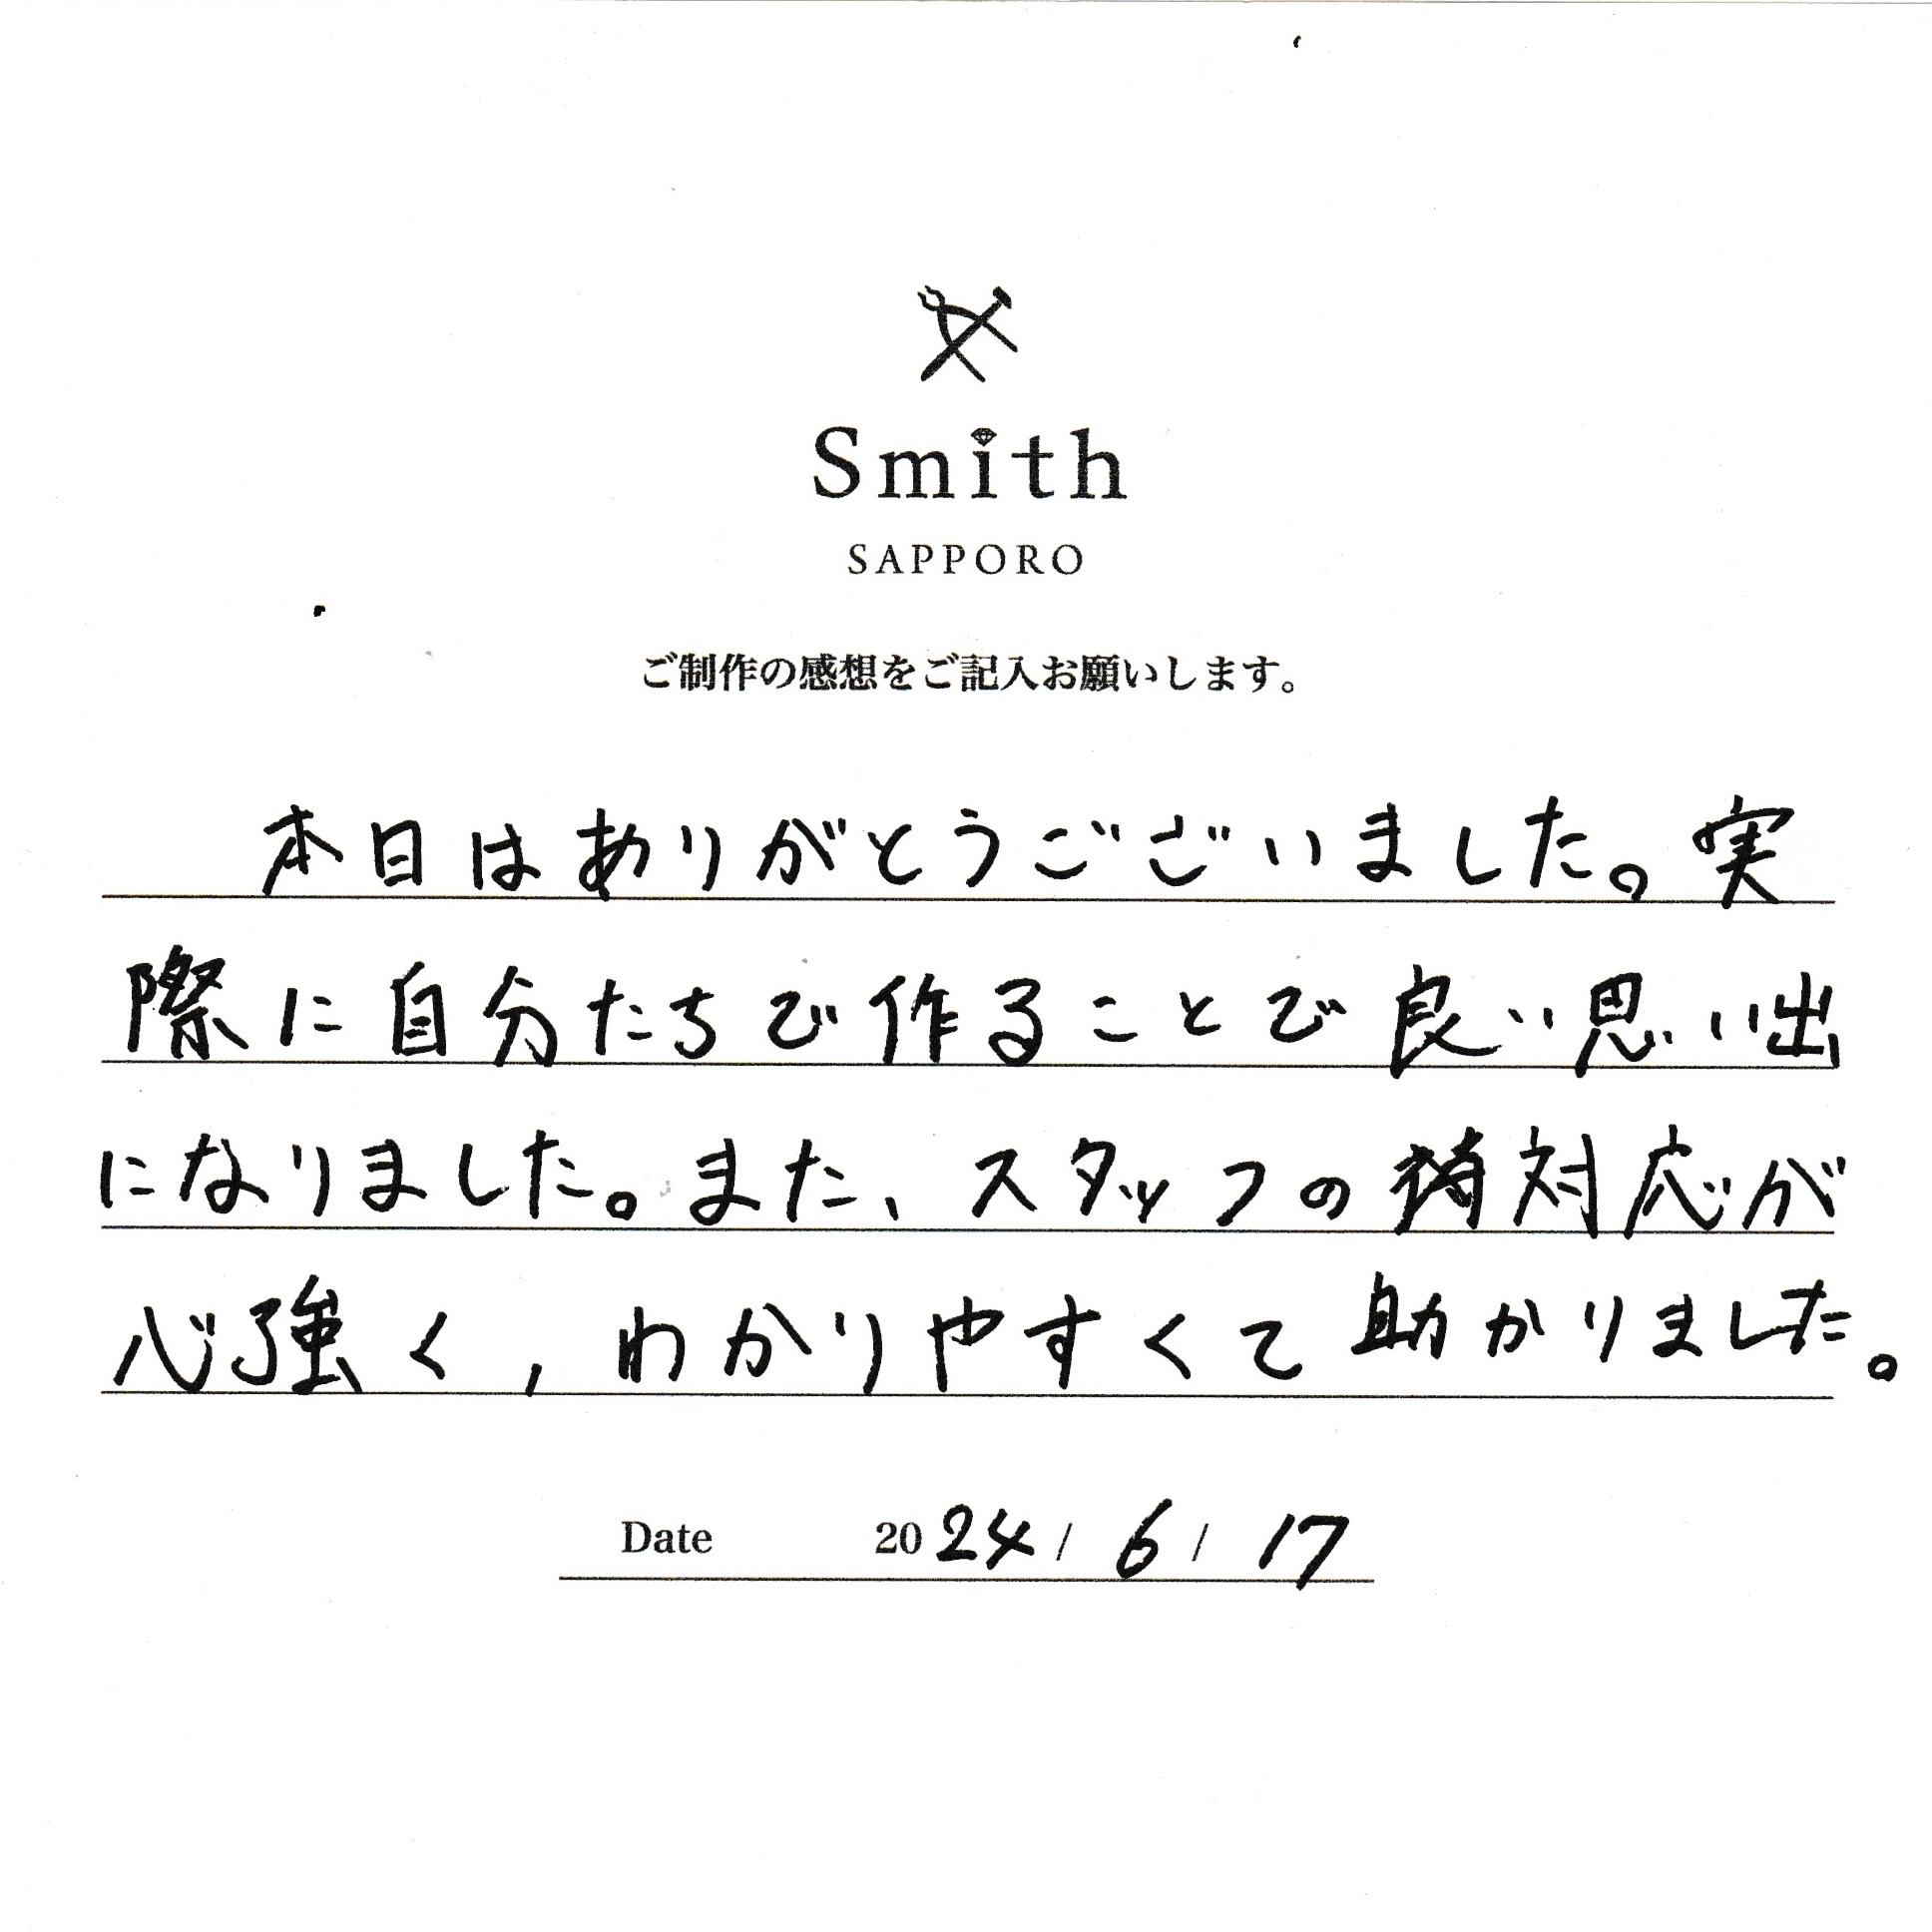 Smith
SAPPORO
ご制作の感想をご記入お願いします。
本日はありがとうございました。実
際に自分たちで作ることで良い思い出
になりました。また、スタッフの対応が
心強く,わかりやすくて助かりました。
Date 2024/6/17